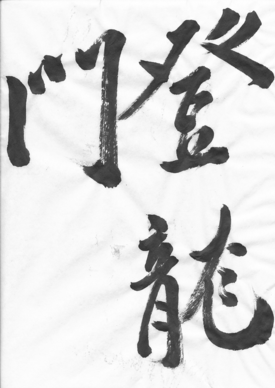 登龍
門